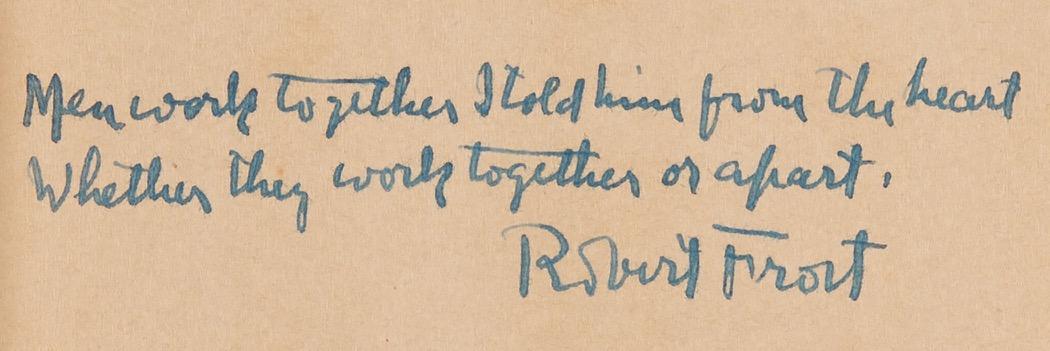 Men work together I told him from the heart
Whether they work together or apart.
Robert Frost